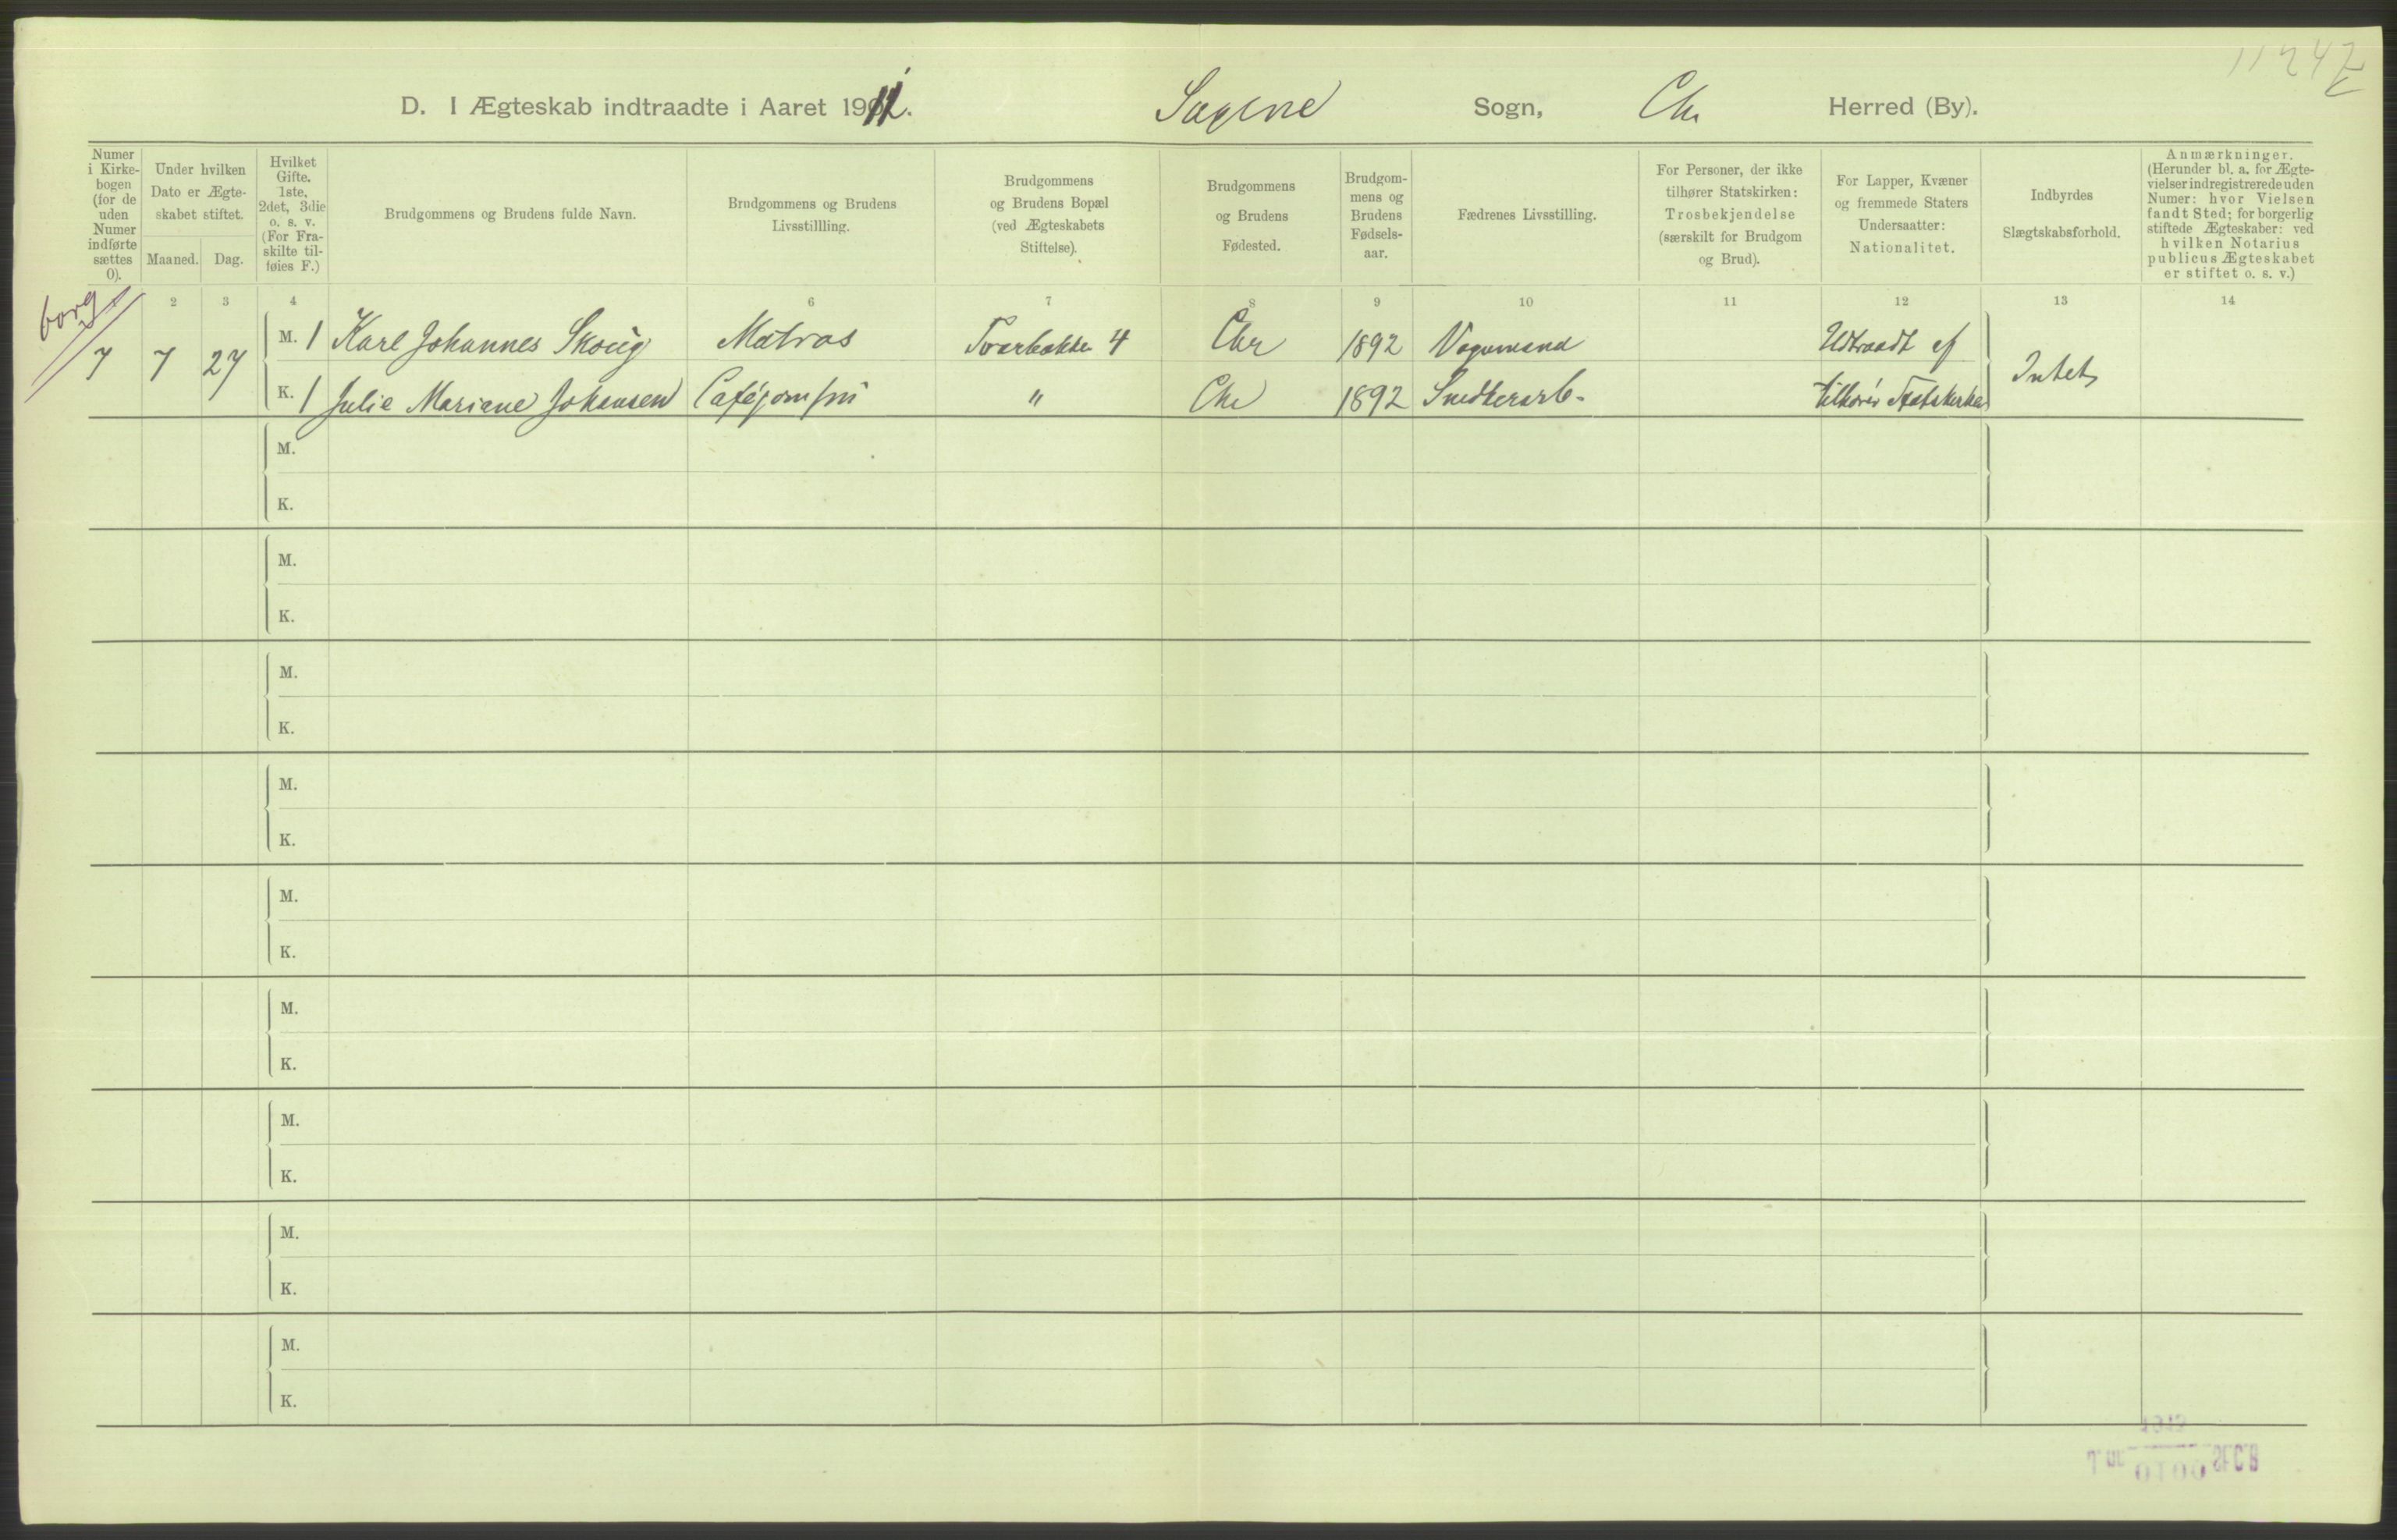 11242
D. I Ægteskab indtraadte i Aaret 1911. Sagene Sogn, Chr Herred (By).
Numer i Kirke-bogen (for de uden Numer indførte sættes 0).
Under hvilken Dato er Ægte-skabet stiftet.
Maaned. Dag.
Hvilket Gifte. 1ste, 2det, 3die o. s. v. (For Fra-skilte til-føies F.)
Brudgommens og Brudens fulde Navn.
Brudgommens og Brudens Livsstillling.
Brudgommens og Brudens Bopæl (ved Ægteskabets Stiftelse).
Brudgommens og Brudens Fødested.
Brudgom-mens og Brudens Fødsels-aar.
Fædrenes Livsstilling.
For Personer, der ikke tilhører Statskirken: Trosbekjendelse (særskilt for Brudgom og Brud).
For Lapper, Kvæner og fremmede Staters Undersaatter: Nationalitet.
Indbyrdes Slægtskabsforhold.
Anmærkninger. (Herunder bl. a. for Ægte-vielser indregistrerede uden Numer: hvor Vielsen fandt Sted; for borgerlig stiftede Ægteskaber: ved hvilken Notarius publicus Ægteskabet er stiftet o. s. v.)
borg
1 2 3 4 6 7 8 9 10 11 12 13 14
7 7 27 M. 1 Karl Johannes Skoug Matros 4 Chr 1892 Vognmand Udtraadt af
Intet
K. 1 Julie Mariane Johansen Caféjomfru " Chr 1892 Snedkerarb. tilhører Statskirken
M.
K.
M.
K.
M.
K.
M.
K.
M.
K.
M.
K.
M.
K.
M.
K.
M.
K.